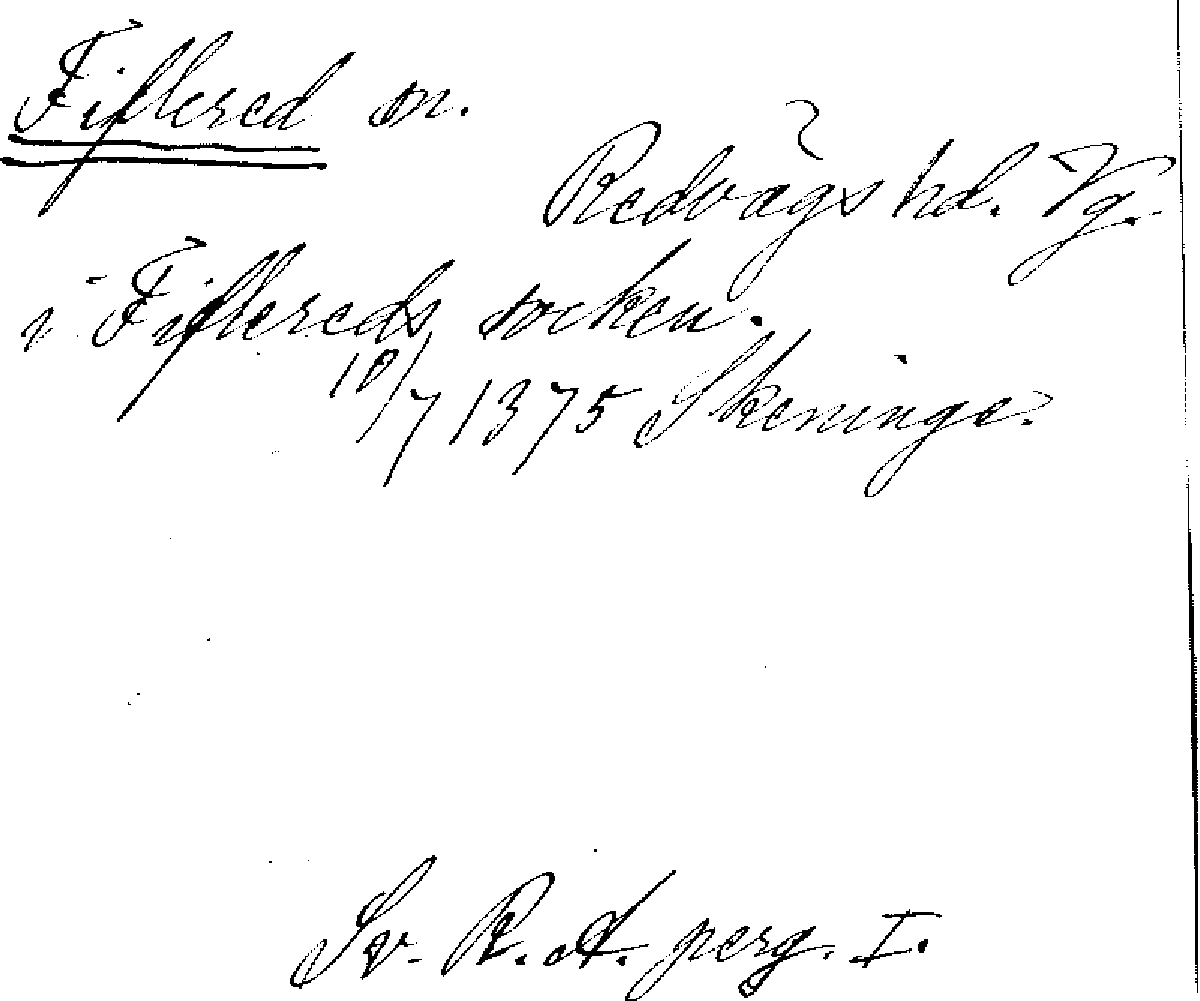 Fiflered sn.
Redvägs hd. Vg.
i Fiflereds socken.
10/7 1375 Skeninge.
Sv. R. A. perg. I.